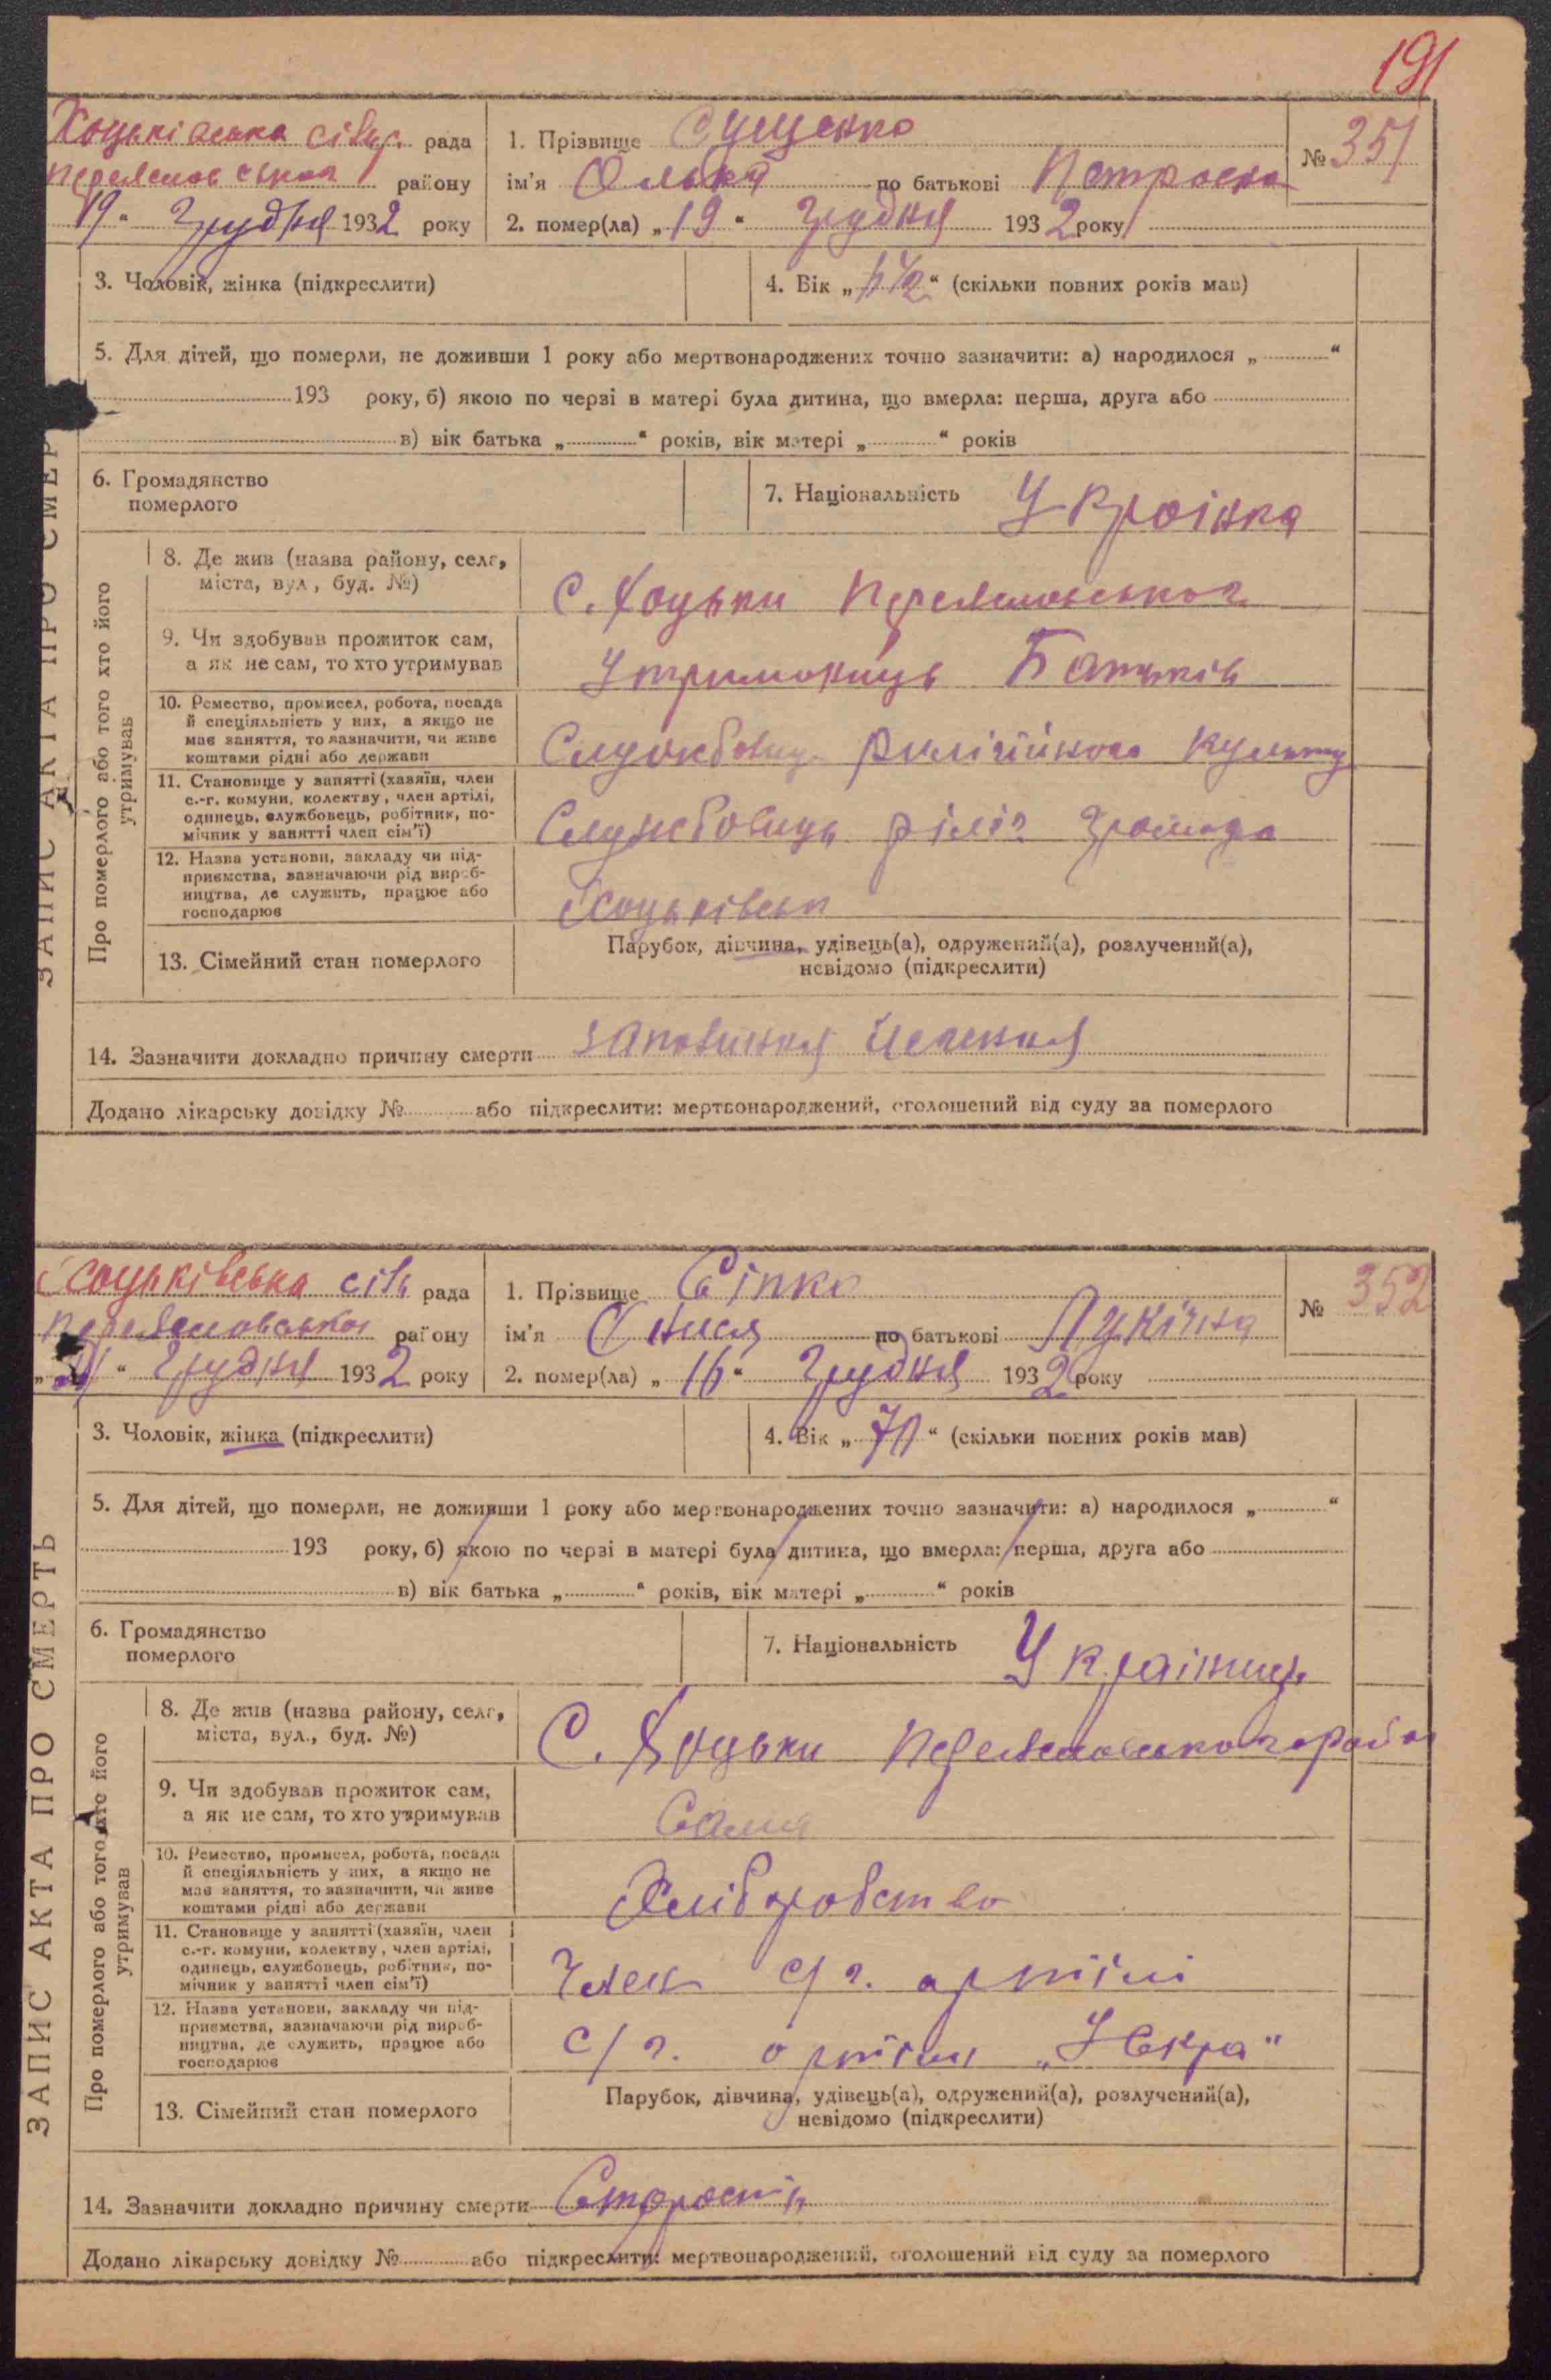 191
Хоцьківська сільр. рада
Переяславського району
"19" Грудня 1932 року
1. Прізвище Сущенко
№ 351
ім'я Олька по батькові Петровна
2. помер(ла) „19" Грудня 1932 року
3. Чоловік, жінка (підкреслити)
4. Вік „1 1/2" (скільки повних років мав)
5. Для дітей, що померли, не доживши 1 року або мертвонароджених точно зазначити: а) народилося „ "
193 року, б) якою по черзі в матері була дитина, що вмерла: перша, друга або
в) вік батька „ " років, вік матері „ " років
6. Громадянство
померлого
7. Національність Украінка
ЗАПИС АКТА ПРО СМЕР
Про померлого або того хто його
утримував
8. Де жив (назва району, села,
міста, вул., буд. №)
С. Хоцьки Переяславського
9. Чи здобував прожиток сам,
а як не сам, то хто утримував
Утриманець Батьків
10. Ремество, промисел, робота, посада
й спеціяльність у них, а якщо не
має заняття, то зазначити, чи живе
коштами рідні або держави
Службовець релігійного культу
11. Становище у занятті (хазяїн, член
с.-г. комуни, колективу, член артілі,
одинець, службовець, робітник, по-
мічник у занятті член сім'ї)
Службовець реліг громада
12. Назва установи, закладу чи під-
приємства, зазначаючи рід вироб-
ництва, де служить, працює або
господарює
Хоцьківськ
13. Сімейний стан померлого
Парубок, дівчина, удівець(а), одружений(а), розлучений(а),
невідомо (підкреслити)
14. Зазначити докладно причину смерти
Додано лікарську довідку № або підкреслити: мертвонароджений, оголошений від суду за померлого
Хоцьківська сіль рада
Переяславського району
„ " Грудня 1932 року
1. Прізвище Сіпко
№ 352
ім'я Онися по батькові Лукічна
2. помер(ла) „16" Грудня 1932 року
3. Чоловік, жінка (підкреслити)
4. Вік „70" (скільки повних років мав)
5. Для дітей, що померли, не доживши 1 року або мертвонароджених точно зазначити: а) народилося „ "
193 року, б) якою по черзі в матері була дитина, що вмерла: перша, друга або
в) вік батька „ " років, вік матері „ " років
6. Громадянство
померлого
7. Національність Украінець
ЗАПИС АКТА ПРО СМЕРТЬ
Про померлого або того хто його
утримував
8. Де жив (назва району, села,
міста, вул., буд. №)
С. Хоцьки Переяславського району
9. Чи здобував прожиток сам,
а як не сам, то хто утримував
Сама
10. Ремество, промисел, робота, посада
й спеціяльність у них, а якщо не
має заняття, то зазначити, чи живе
коштами рідні або держави
Хліборобство
11. Становище у занятті (хазяїн, член
с.-г. комуни, колективу, член артілі,
одинець, службовець, робітник, по-
мічник у занятті член сім'ї)
Член с/г. артілі
12. Назва установи, закладу чи під-
приємства, зазначаючи рід вироб-
ництва, де служить, працює або
господарює
с/г. артіль „Іскра"
13. Сімейний стан померлого
Парубок, дівчина, удівець(а), одружений(а), розлучений(а),
невідомо (підкреслити)
14. Зазначити докладно причину смерти Старость
Додано лікарську довідку № або підкреслити: мертвонароджений, оголошений від суду за померлого